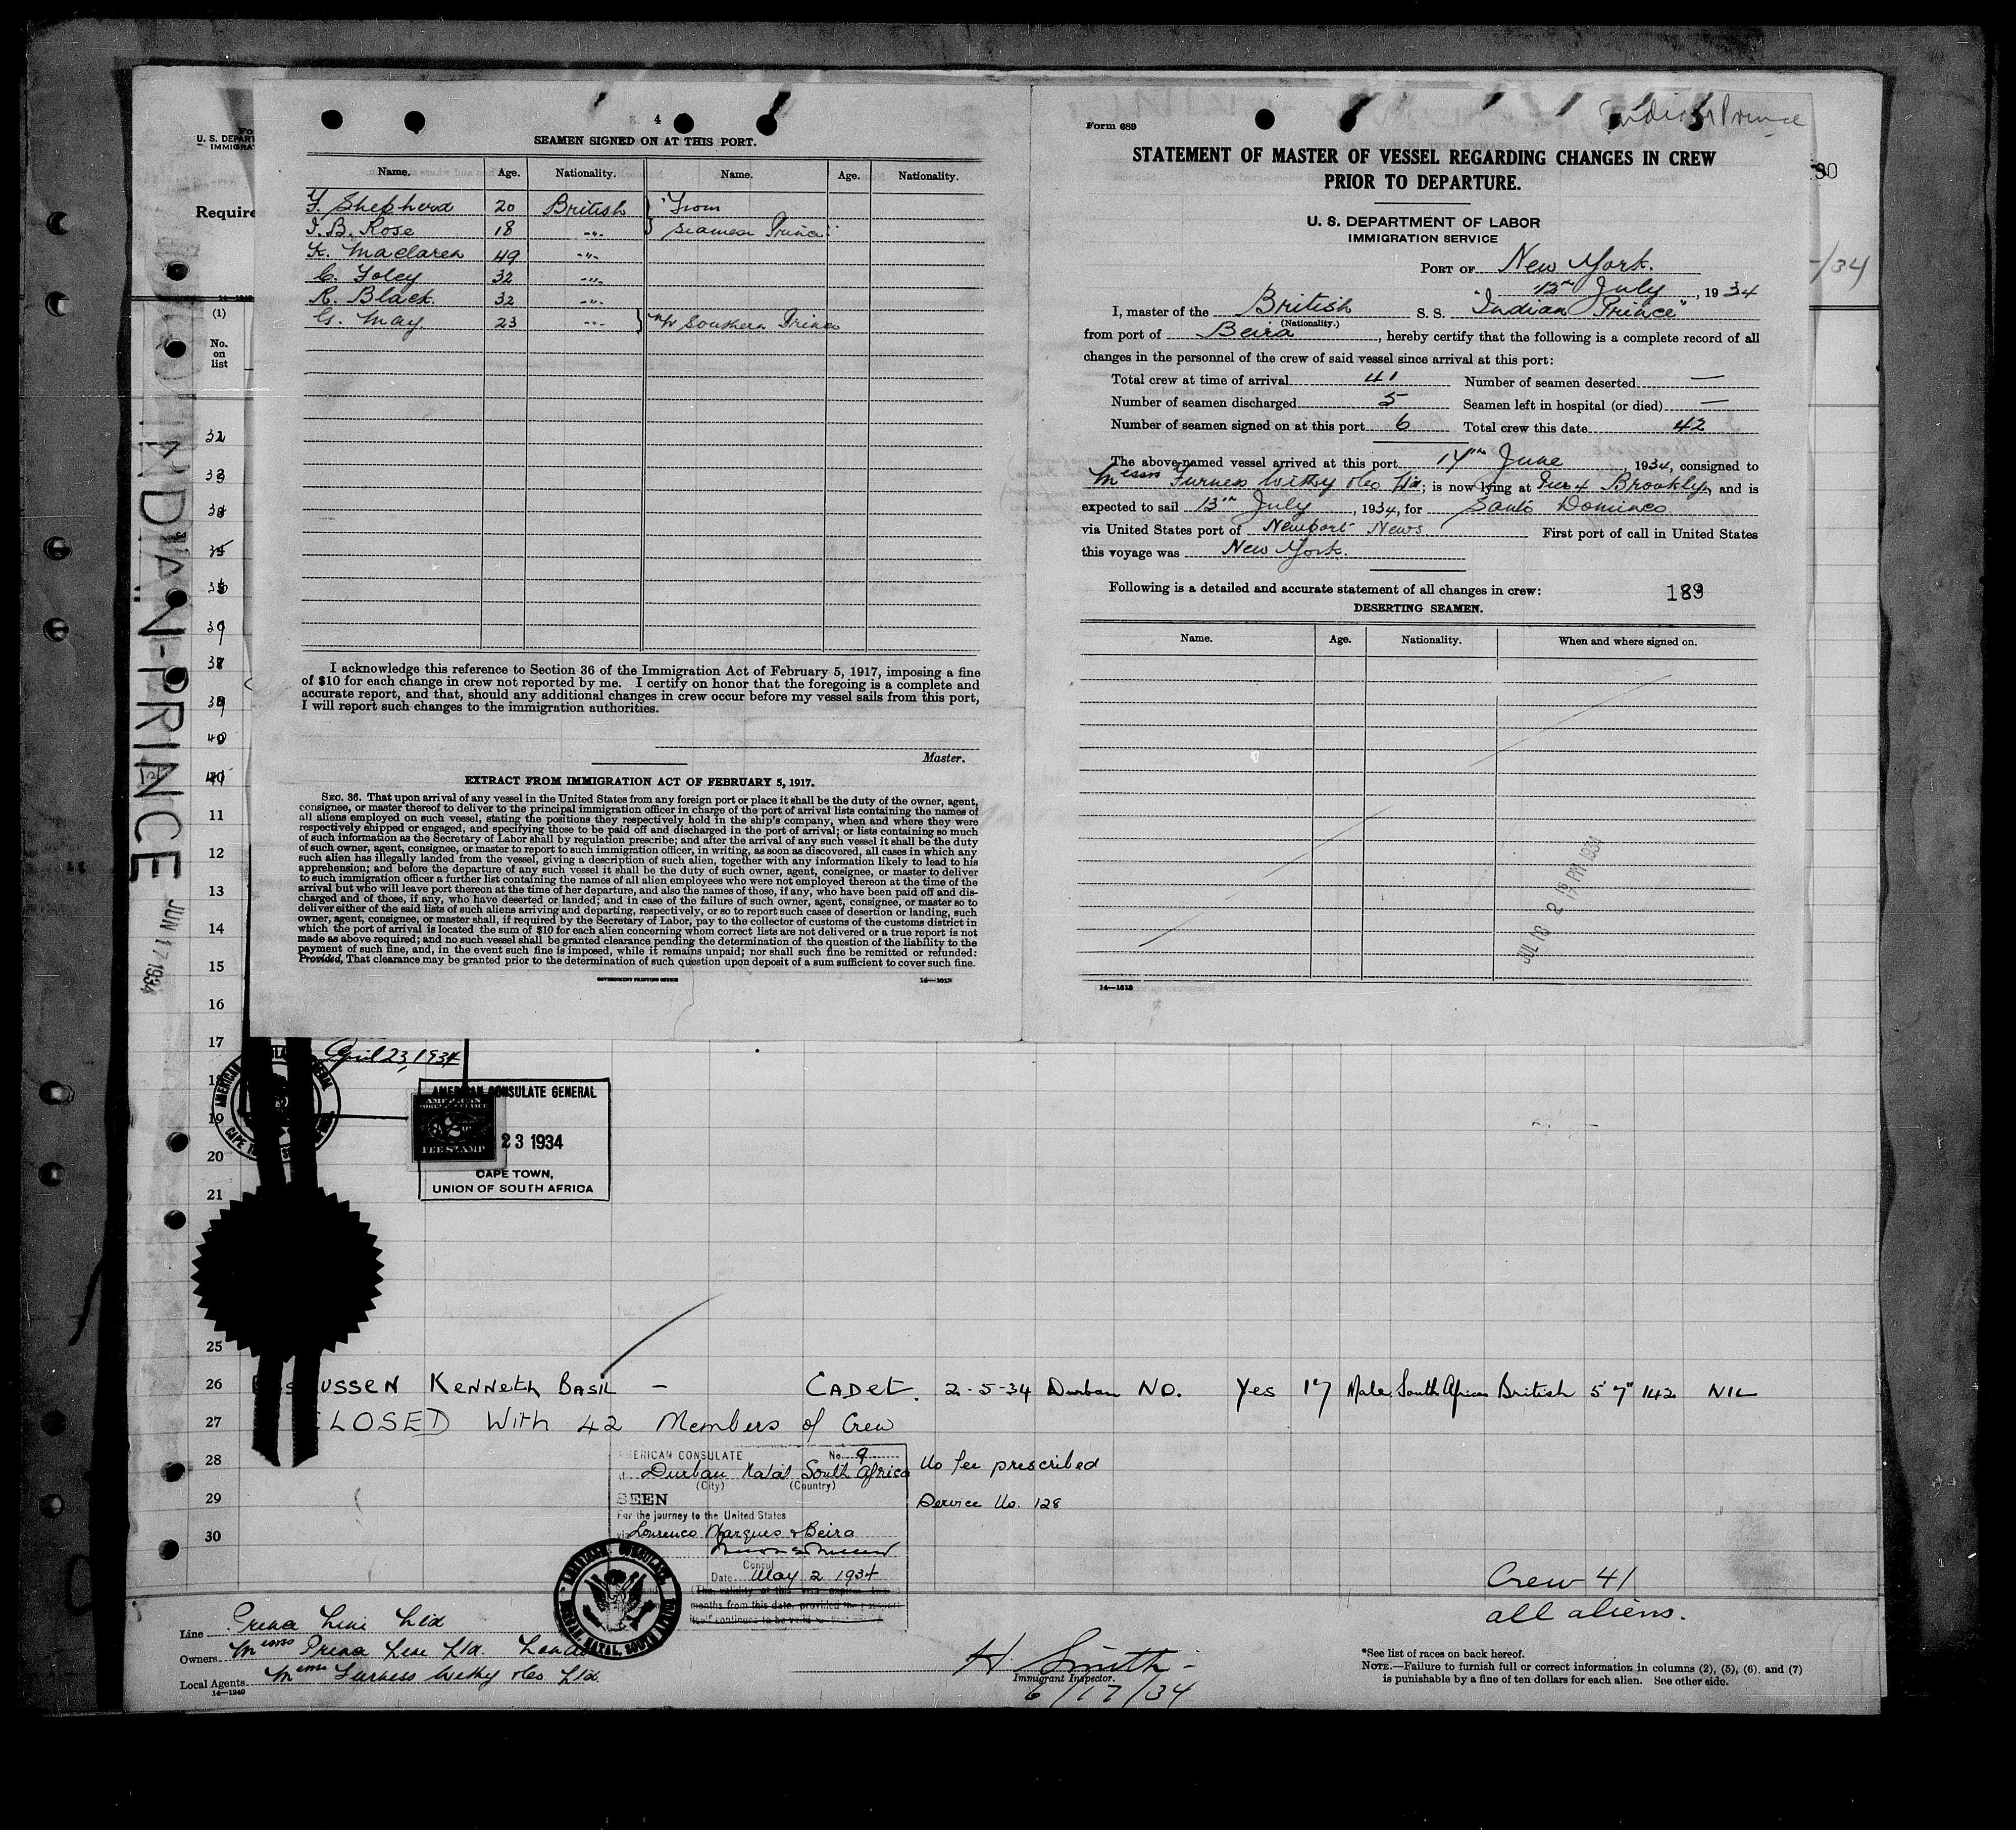 4
SEAMEN SIGNED ON AT THIS PORT.
Name. Age. Nationality. Name. Age. Nationality.
F. Shepherd 20 British From
I. B. Rose 18 -"- Siamese Prince
K. Maclaren 49 -"-
C. Foley 32 -"-
R. Black 32 -"-
G. May 23 -"- Southern Prince
I acknowledge this reference to Section 36 of the Immigration Act of February 5, 1917, imposing a fine
of $10 for each change in crew not reported by me. I certify on honor that the foregoing is a complete and
accurate report, and that, should any additional changes in crew occur before my vessel sails from this port,
I will report such changes to the immigration authorities.
Master.
EXTRACT FROM IMMIGRATION ACT OF FEBRUARY 5, 1917.
SEC. 36. That upon arrival of any vessel in the United States from any foreign port or place it shall be the duty of the owner, agent,
consignee, or master thereof to deliver to the principal immigration officer in charge of the port of arrival lists containing the names of
all aliens employed on such vessel, stating the positions they respectively hold in the ship's company, when and where they were
respectively shipped or engaged, and specifying those to be paid off and discharged in the port of arrival; or lists containing so much
of such information as the Secretary of Labor shall by regulation prescribe; and after the arrival of any such vessel it shall be the duty
of such owner, agent, consignee, or master to report to such immigration officer, in writing, as soon as discovered, all cases in which any
such alien has illegally landed from the vessel, giving a description of such alien, together with any information likely to lead to his
apprehension; and before the departure of any such vessel it shall be the duty of such owner, agent, consignee, or master to deliver
to such immigration officer a further list containing the names of all alien employees who were not employed thereon at the time of the
arrival but who will leave port thereon at the time of her departure, and also the names of those, if any, who have been paid off and dis-
charged and of those, if any, who have deserted or landed; and in case of the failure of such owner, agent, consignee, or master so to
deliver either of the said lists of such aliens arriving and departing, respectively, or so to report such cases of desertion or landing, such
owner, agent, consignee, or master shall, if required by the Secretary of Labor, pay to the collector of customs of the customs district in
which the port of arrival is located the sum of $10 for each alien concerning whom correct lists are not delivered or a true report is not
made as above required; and no such vessel shall be granted clearance pending the determination of the question of the liability to the
payment of such fine, and, in the event such fine is imposed, while it remains unpaid; nor shall such fine be remitted or refunded:
Provided, That clearance may be granted prior to the determination of such question upon deposit of a sum sufficient to cover such fine.
GOVERNMENT PRINTING OFFICE 14—1618
Form 689
Indian Prince
STATEMENT OF MASTER OF VESSEL REGARDING CHANGES IN CREW
PRIOR TO DEPARTURE.
U. S. DEPARTMENT OF LABOR
IMMIGRATION SERVICE
PORT OF New York.
13th July, 1934
I, master of the British S. S. "Indian Prince"
(Nationality.)
from port of Beira, hereby certify that the following is a complete record of all
changes in the personnel of the crew of said vessel since arrival at this port:
Total crew at time of arrival 41 Number of seamen deserted —
Number of seamen discharged 5 Seamen left in hospital (or died) —
Number of seamen signed on at this port 6 Total crew this date 42
The above-named vessel arrived at this port 17th June, 1934, consigned to
Messrs Furness Withy &Co Ltd; is now lying at Pier 4 Brooklyn, and is
expected to sail 13th July, 1934, for Santo Domingo
via United States port of Newport News First port of call in United States
this voyage was New York.
Following is a detailed and accurate statement of all changes in crew: 189
DESERTING SEAMEN.
Name. Age. Nationality. When and where signed on.
JUL 13 2 PM 1934
14—1618
U. S. DEPART
IMMIGRA
Require
/34
(1)
No.
on
list
INDIAN-PRINCE
JUN 17 1934
32
33
34
35
36
37
38
39
40
41
11
12
13
14
15
16
17
18
19
20
21
April 23, 1934
AMERICAN CONSULATE GENERAL
23 1934
CAPE TOWN,
UNION OF SOUTH AFRICA
AMERICAN
FEE STAMP
25
26 USSEN Kenneth BASIL — CADET. 2-5-34 Durban NO. Yes 17 Male South African British 5' 7" 142 NIL
27 CLOSED With 42 Members of Crew
28 AMERICAN CONSULATE No. 9
Durban Natal South Africa No fee prescribed
(City) (Country)
29 SEEN Service No. 128
For the journey to the United States
30 via Lourenco Marques & Beira
Consul
Date May 2 1934
(The validity of this visa expires
months from this date, provided the passport
itself continues to be valid
AMERICAN CONSULATE DURBAN, NATAL, SOUTH AFRICA
Crew 41
all aliens.
Line Prince Line Ltd
Owners Messrs Prince Line Ltd. London
Local Agents Messrs Furness Withy &Co Ltd.
14—1240
H. Smith
Immigrant Inspector.
6/17/34
*See list of races on back hereof.
NOTE.—Failure to furnish full or correct information in columns (2), (5), (6), and (7)
is punishable by a fine of ten dollars for each alien. See other side.